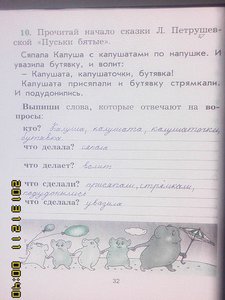 10. Прочитай начало сказки Л. Петрушев-
ской «Пуськи бятые».
Сяпала Калуша с калушатами по напушке. И
увазила бутявку, и волит:
– Калушата, калушаточки, бутявка!
Калушата присяпали и бутявку стрямкали.
И подудонились.
Выпиши слова, которые отвечают на во-
просы:
кто? Калуша, калушата, калушаточки,
бутявка
что делала? сяпала
что делает? волит
что сделали? присяпали, стрямкали,
подудонились
что сделала? увазила
32